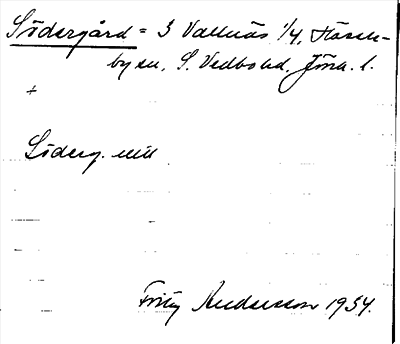 Södergård = 3 Vallnäs 1/4, Hässle-
by sn, S. Vedbo hd, Jönk. l.
+
Söderg.
Fritz Andersson 1934.